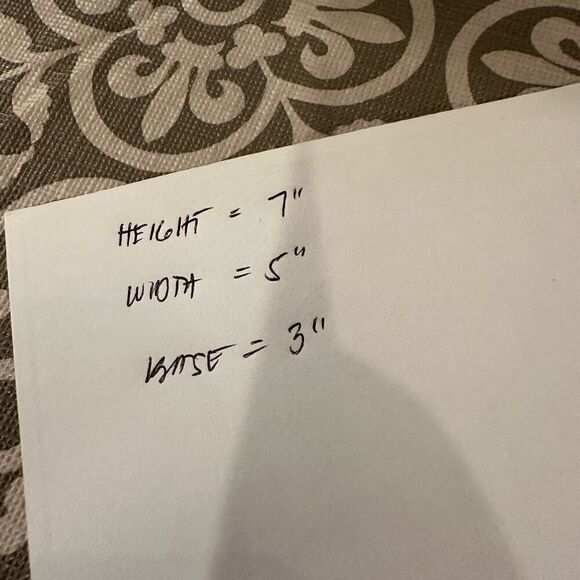 HEIGHT = 7"
WIDTH = 5"
BASE = 3"